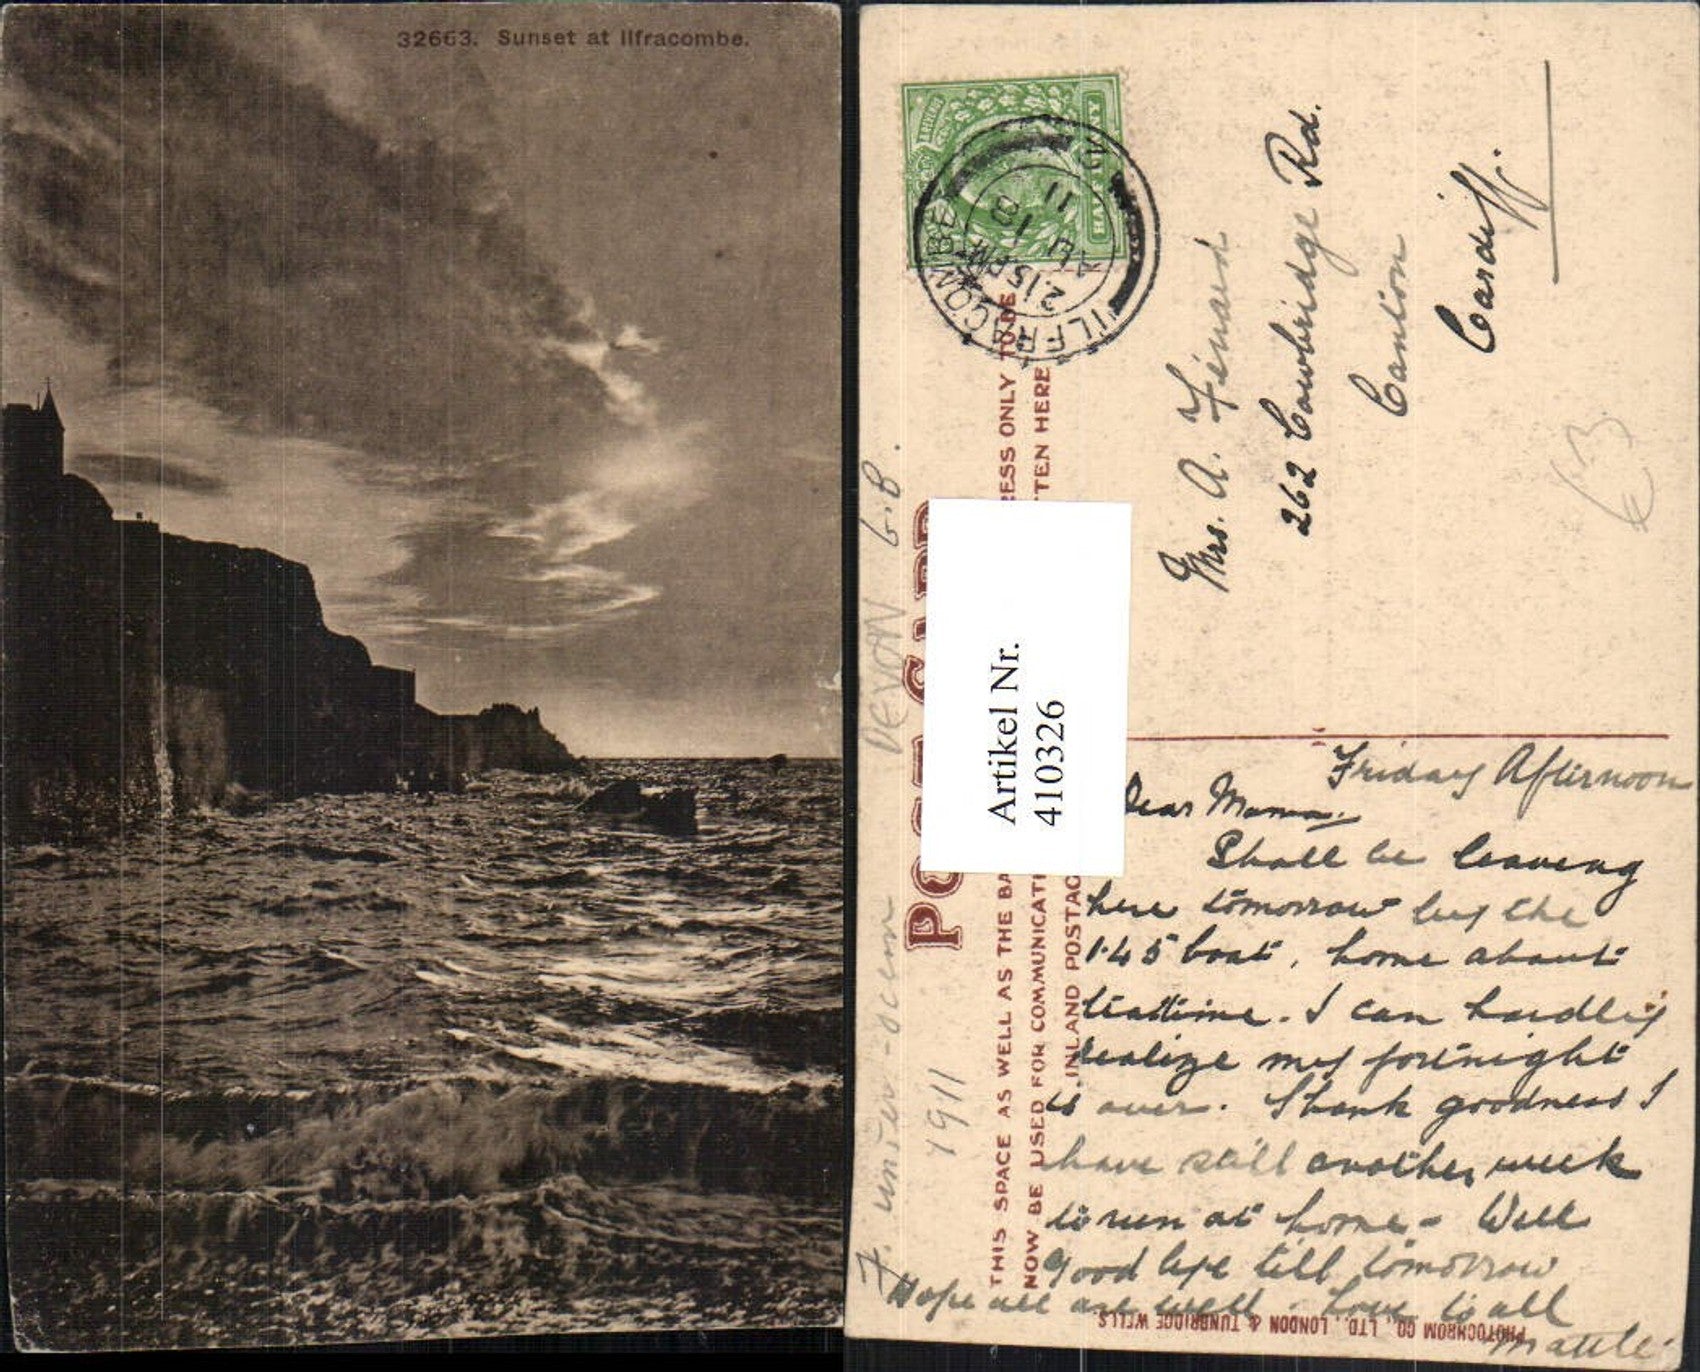 32663. Sunset at Ilfracombe.
ILFRACOMBE
2.15 PM
AU 18
11
HALFPENNY
POST CARD
THIS SPACE AS WELL AS THE BA RESS ONLY TO BE
NOW BE USED FOR COMMUNICATI TEN HERE
INLAND POSTAG
DEVON G.B.
1911
Artikel Nr.
410326
Mrs. A.
262 Cowbridge Rd.
Canton
Cardiff.
€3
Friday Afternoon
Dear Mama.
Shall be leaving
here tomorrow by the
1.45 boat, home about
teatime. I can hardly
realize my fortnight
is over. Thank goodness I
have still another week
to run at home - Well
Good bye till tomorrow
Hope all are well. Love to all
Mattie.
PHOTOCHROM CO., LTD., LONDON & TUNBRIDGE WELLS.